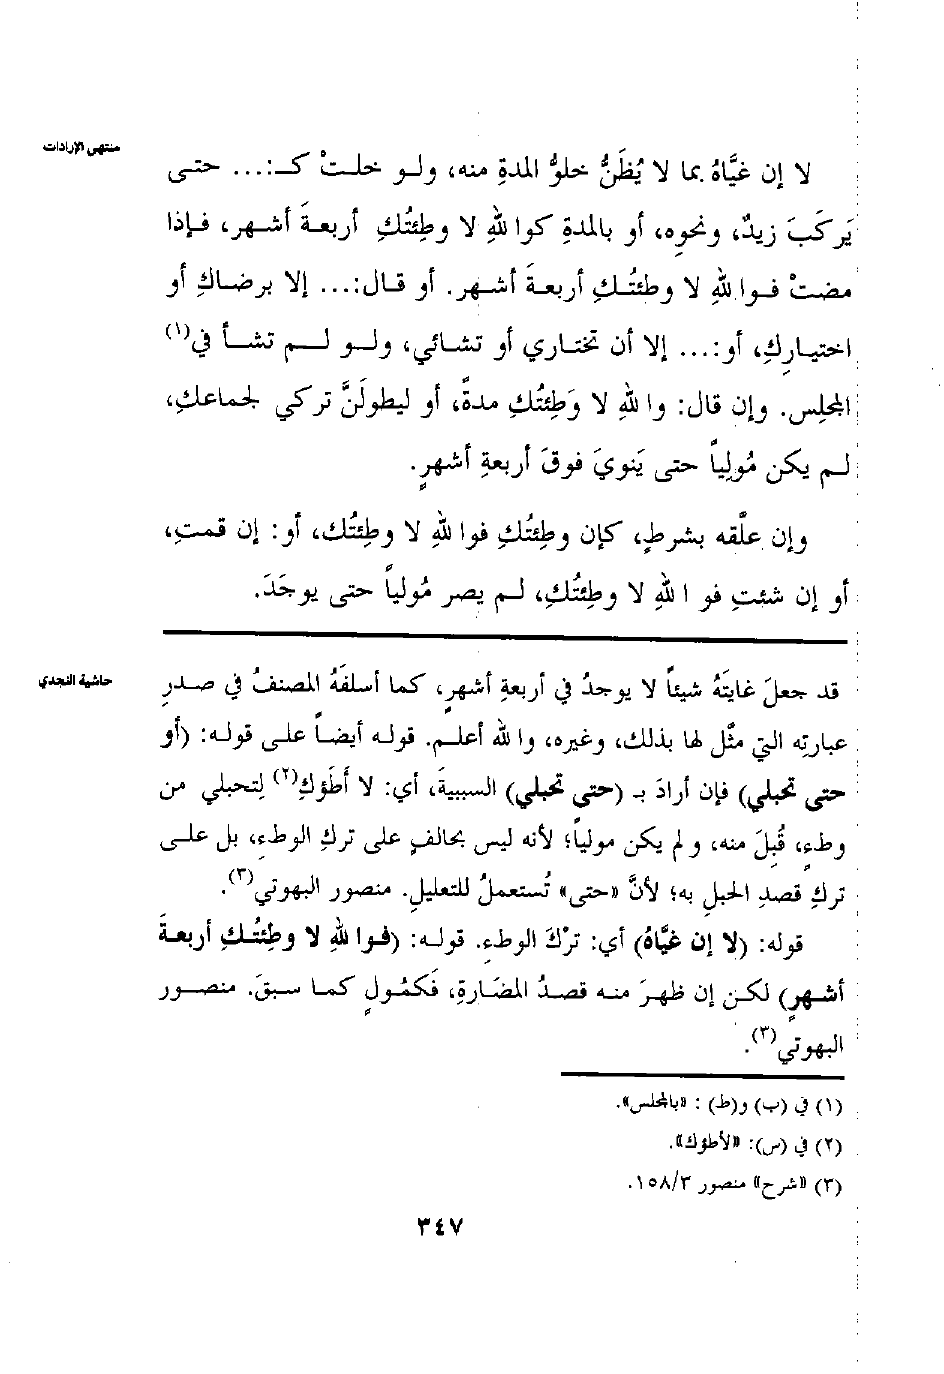 منتهى الإرادات
لا إن غيَّاهُ بما لا يُظَنُّ خلوُّ المدةِ منه، ولـو خلـتْ كـ:... حتـى
يَركَبَ زيدٌ، ونحوِه، أو بالمدةِ كوا للهِ لا وطِئتُكِ أربعـةَ أشهـر، فـإذا
مضتْ فـوا للهِ لا وطئتُـكِ أربعـةَ أشهـر. أو قـال:... إلا برضـاكِ أو
اختيـارِكِ، أو:... إلا أن تختـاري أو تشـائي، ولـو لـم تشـأ في(١)
المجلِس. وإن قال: وا للهِ لا وَطِئتُكِ مدةً، أو ليطولَنَّ تركي لجماعكِ،
لـم يكن مُولِياً حتى يَنويَ فوقَ أربعةِ أشهرٍ.
وإن علَّقه بشرطٍ، كإن وطِئتُكِ فوا للهِ لا وطِئتُك، أو: إن قمتِ،
أو إن شئتِ فو ا للهِ لا وطِئتُكِ، لـم يصر مُولياً حتى يوجَدَ.
حاشية النجدي
قد جعلَ غايتَهُ شيئاً لا يوجدُ في أربعةِ أشهرٍ، كمـا أسلفَهُ المصنفُ في صـدرِ
عبارتِه التي مثَّل لها بذلك، وغيره، وا لله أعلـم. قولـه أيضـاً علـى قولـه: (أو
حتى تحبلي) فإن أرادَ بـ (حتى تحبلي) السببيةَ، أي: لا أطَؤكِ(٢) لِتحبلي من
وطءٍ، قُبِلَ منه، و لم يكن مولياً؛ لأنه ليس بحالفٍ على تركِ الوطءِ، بل علـى
تركِ قصدِ الحبلِ به؛ لأنَّ «حتى» تُستعملُ للتعليلِ. منصور البهوتي(٣).
قوله: (لا إن غيَّاهُ) أي: تركَ الوطءِ. قولـه: (فـوا للهِ لا وطِئتُـكِ أربعـةَ
أشهرٍ) لكـن إن ظهـرَ منـه قصدُ المضـارةِ، فَكَمُولٍ كمـا سبقَ. منصـور
البهوتي(٣).
(١) في (ب) و(ط) : «بالمجلس».
(٢) في (س): «لأطؤك».
(٣) «شرح» منصور ١٥٨/٣.
٣٤٧